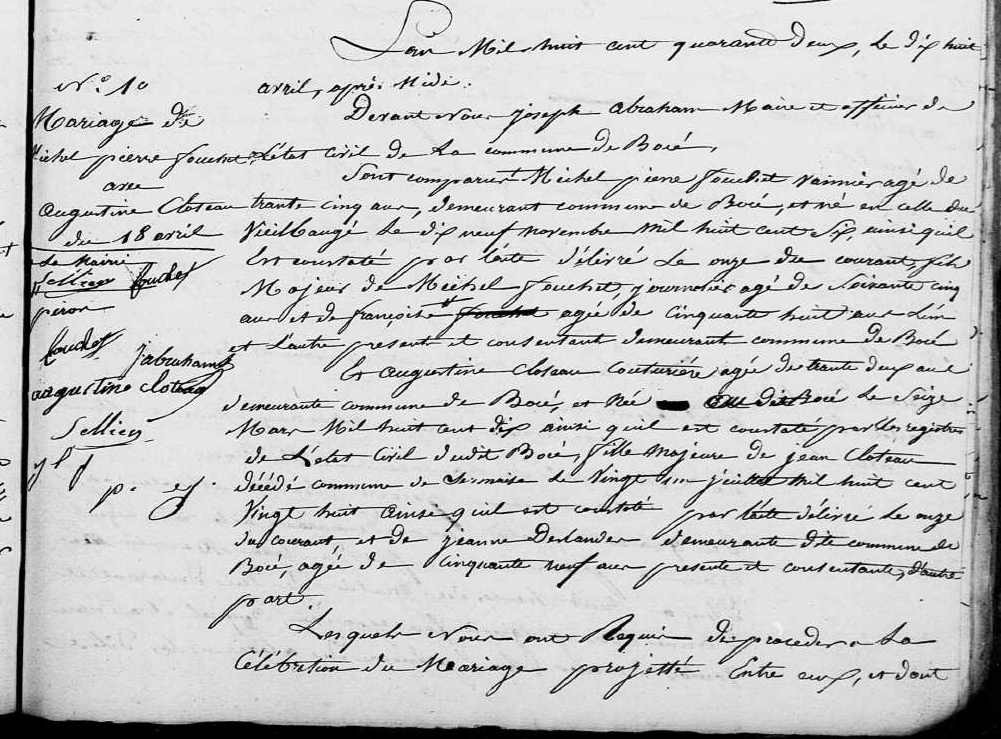 L'an Mil huit cent quarante deux, Le dix huit
avril, après Midi.
Devant Nous joseph abraham Maire et officier de
L'état Civil de La commune de Bocé,
Sont comparus Michel pierre fouchet vannier agé de
trante cinq ans, demeurant commune de Bocé, et né en celle du
Vieil Baugé Le dix neuf novembre Mil huit cent Six, ainsi quil
Est constaté par l'acte délivré Le onze du courant, fils
Majeur de Michel fouchet, journalier agé de Soixante cinq
ans et de françoise fouchet agée de Cinquante huit ans L'un
et L'autre present et consentant demeurant commune de Bocé
Et augustine Cloteau Couturière agée de trante deux ans
demeurante commune de Bocé, et Née au dit Bocé Le Seize
Mars Mil huit cent dix ainsi quil est constaté par Les registres
de L'etat Civil dudit Bocé, fille Majeure de jean Cloteau
décédé commune de Sermaise Le Vingt un juillet Mil huit cent
Vingt huit ainsi quil est constaté par l'acte délivré Le onze
du courant et de jeanne Deslandes demeurante dite commune de
Bocé, agée de Cinquante neuf ans presente et consentante, d'autre
part.
Lesquels Nous ont Requis de proceder a La
Célébrition du Mariage projetté Entre eux, et dont
N.° 10
Mariage de
Michel pierre fouchet
avec
augustine Cloteau
du 18 avril
fouchet
piron
fouchet
jabraham
augustine cloteau
Sellier